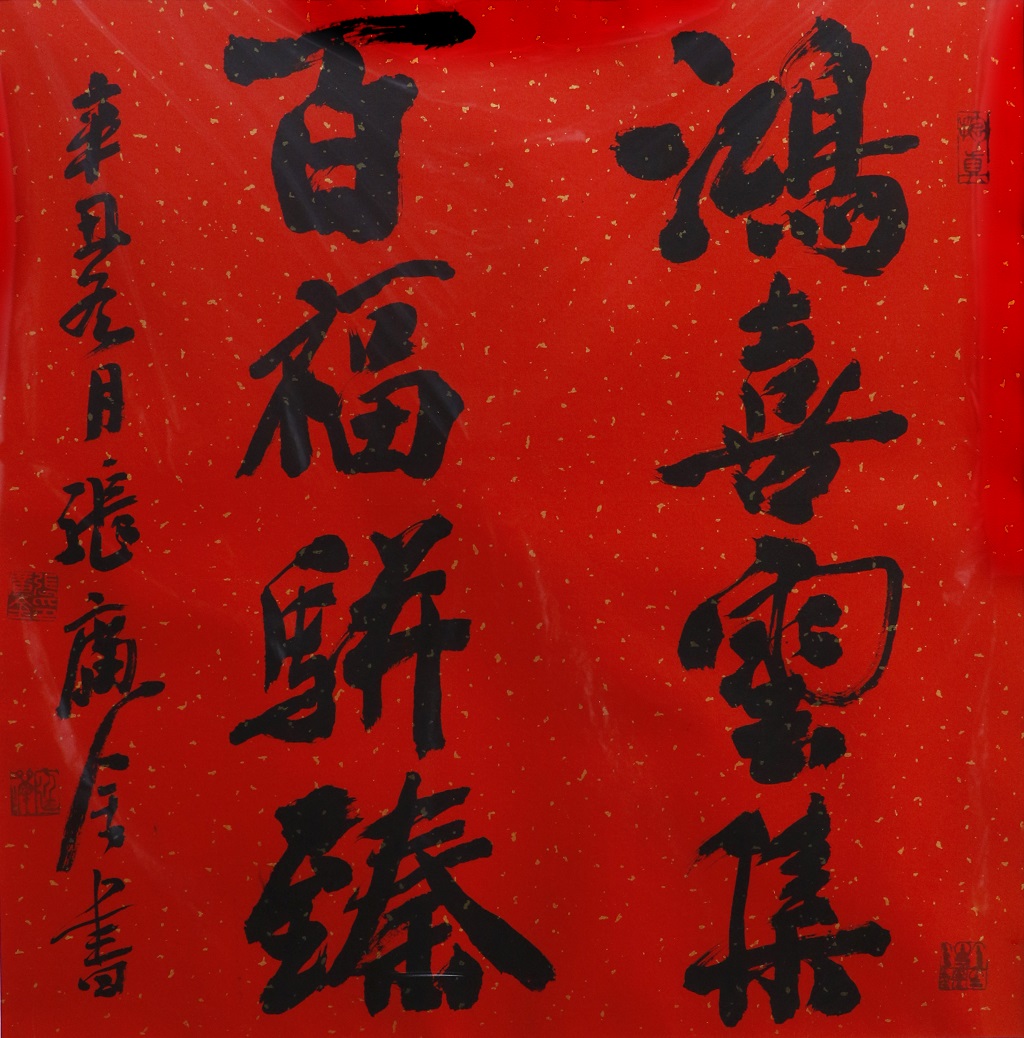 鴻喜雲集
百福駢臻
辛丑冬月張庸金書